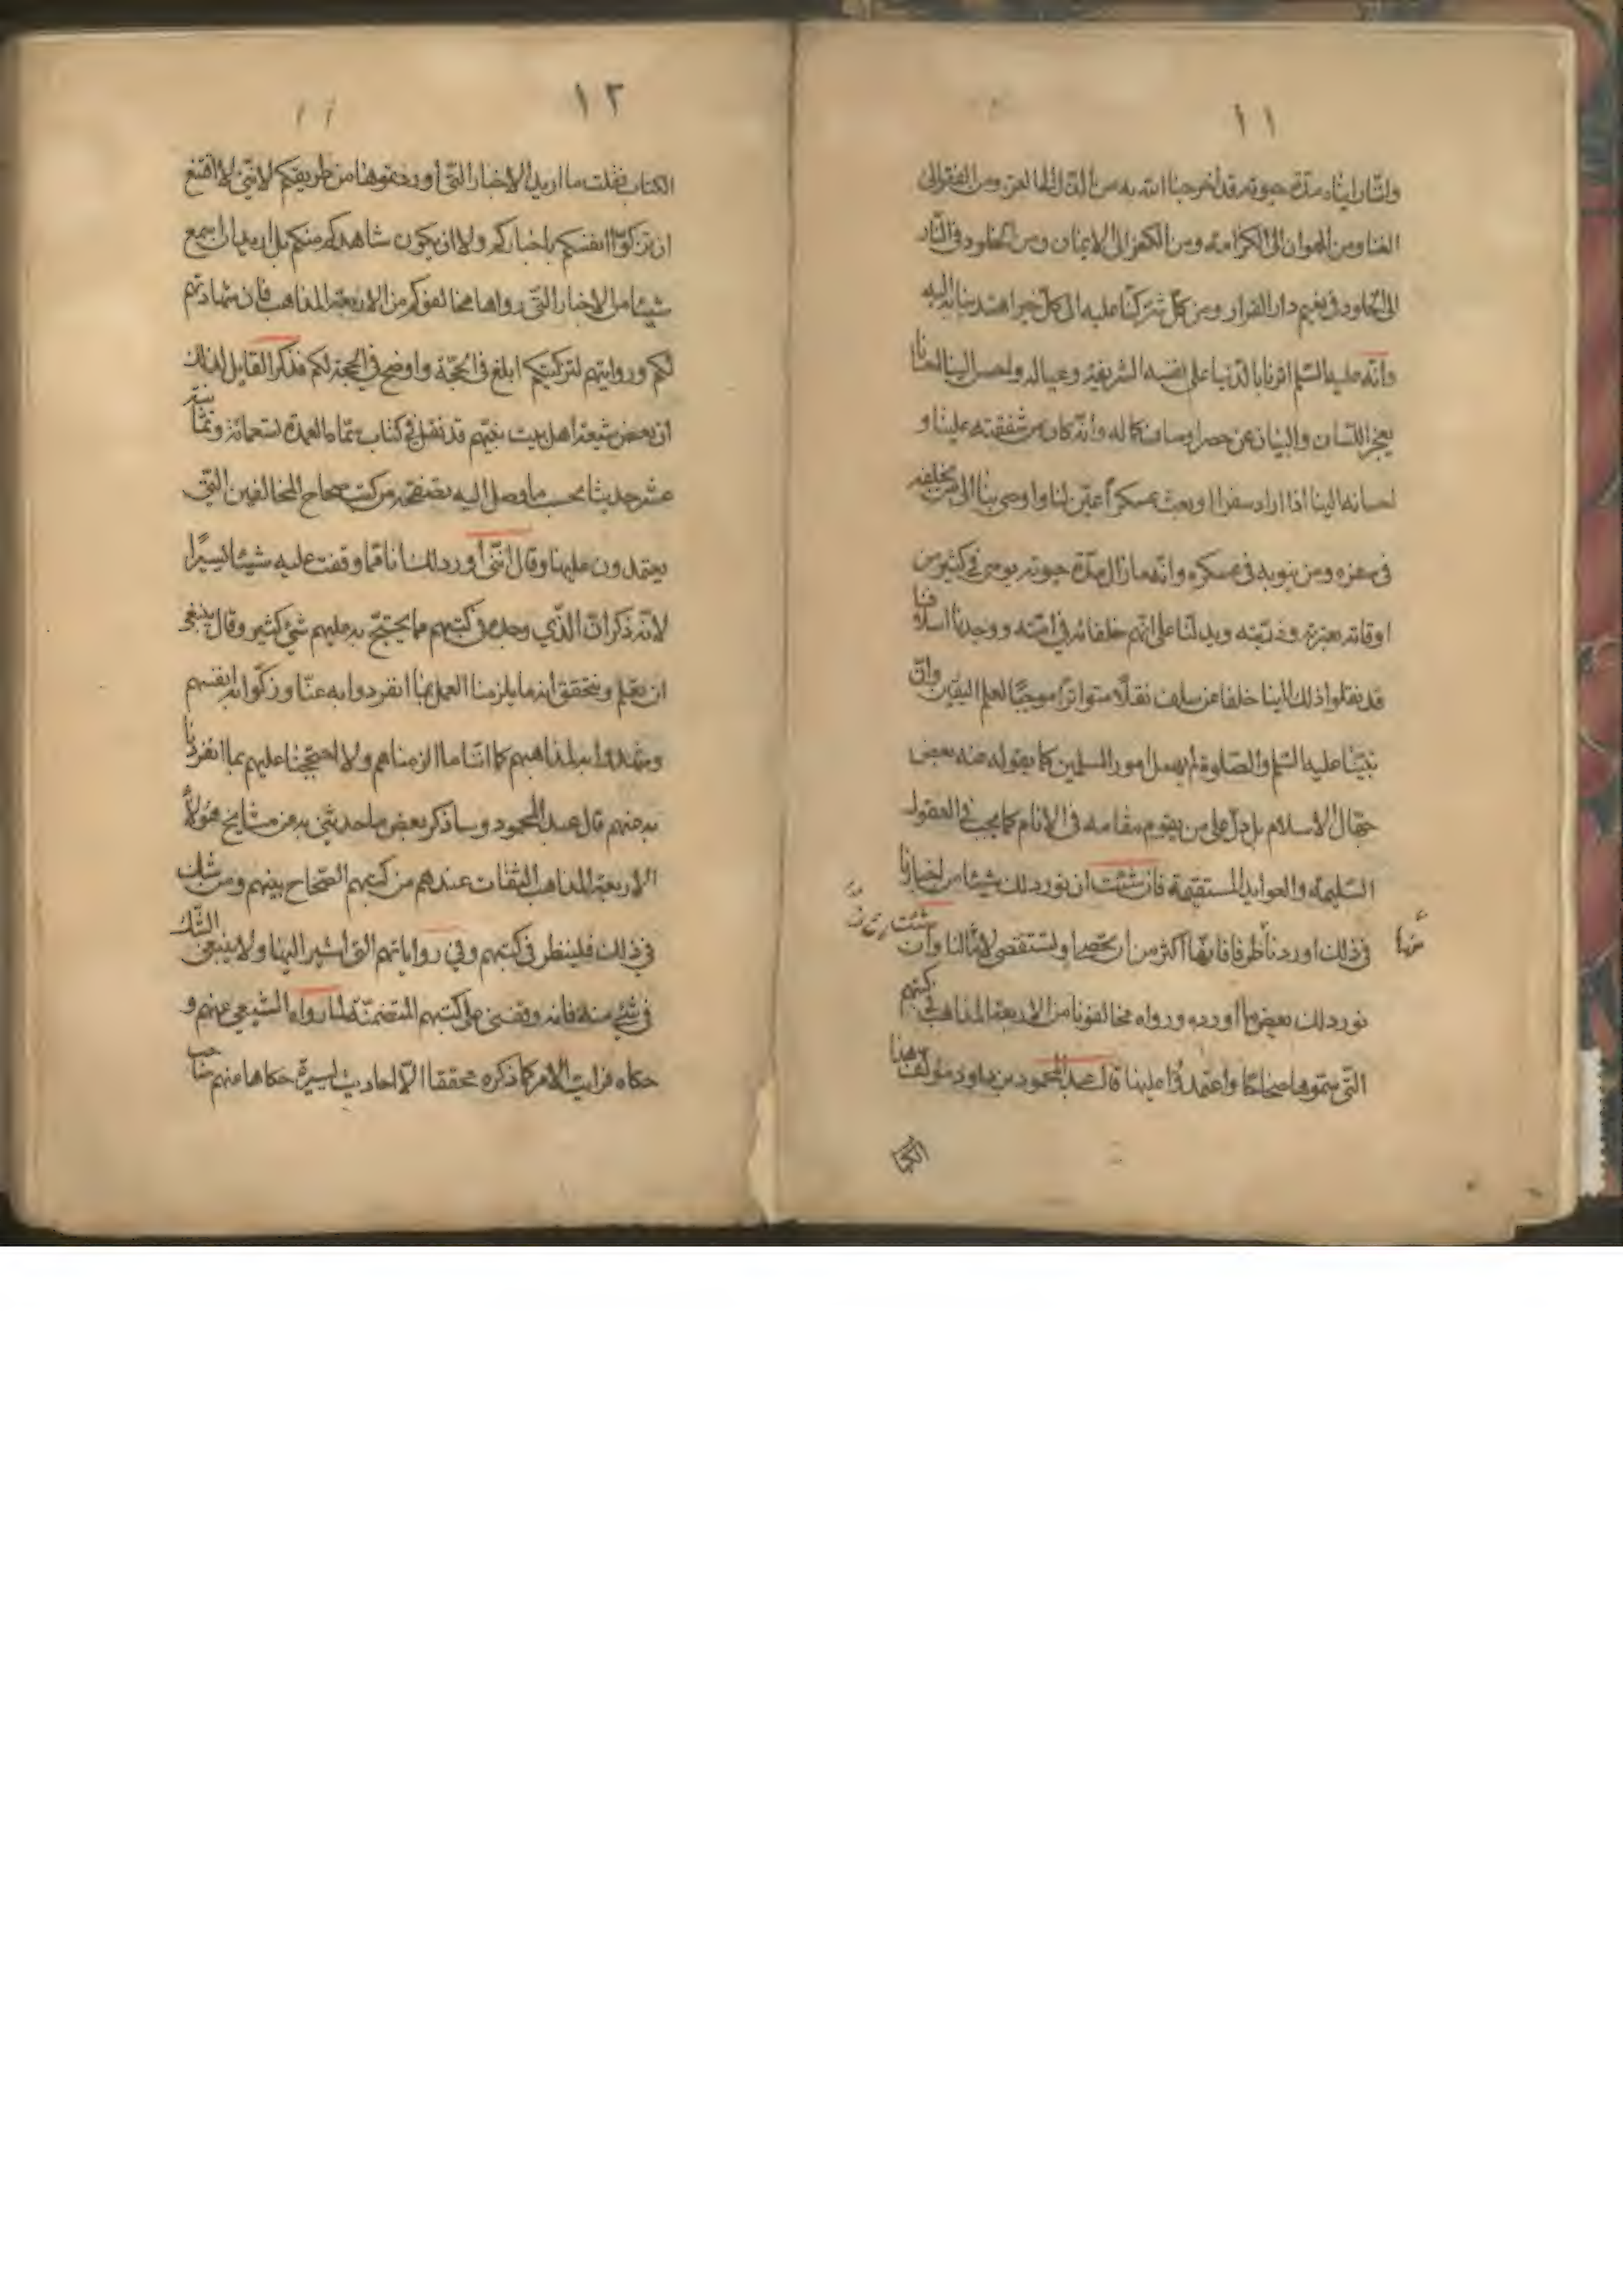 ١١
ولقد راينا مدة حيوته قد اخرجنا الله به من الذل الى العز ومن الفقر الى
الغنا ومن الهوان الى الكرامة ومن الكفر الى الايمان ومن الخلود فى النار
الى الخلود فى نعيم دار القرار ومن كل شر كنا عليه الى كل خير اهتدينا به اليه
وانه عليه السلم اثرنا بالدنيا على نفسه الشريفة وعياله وحصل الينا
يعجز اللسان والبيان عن حصر اوصاف كماله وانه كان من شفقته علينا و
احسانه الينا اذا اراد سفرا او بعث عسكرا عين لنا واوصى بنا الى من يخلفه
فى سفره ومن ينوبه فى عسكره وانه ما زال مدة حيوته يوصى فى كثير من
اوقاته بعترته وذريته ويدلنا على انهم خلفائه فى امته ووجدنا اسلافنا
قد نقلوا ذلك الينا خلفا عن سلف نقلا متواترا موجبا لعلم اليقين وان
نبينا عليه السلم والصلوة لم يهمل امور المسلمين كما يقوله عنه بعض
جهال الاسلام بل دل على من يقوم مقامه فى الانام كما يجب فى العقول
السليمة والعوايد المستقيمة فان شئت ان نورد لك شيئا من اخبارنا
فى ذلك اوردنا طرفا فانها اكثر من ان تحصى او تستقصى لامثالنا وان شئت
منها
نورد لك بعض ما اورده ورواه مخالفونا من الاربعة المذاهب فى كتبهم
التى سموها صحاحا واعتمدوا عليها قال عبد المحمود بن داود مؤلف هذا
الكتا
١٢
١١
الكتاب فقلت ما اريد الاخبار التى اوردتموها من طريقكم لاننى لا اقنع
ان تزكوا انفسكم باخباركم ولا ان يكون شاهدكم منكم بل اريد ان اسمع
شيئا من الاخبار التى رواها مخالفوكم من الاربعة المذاهب فان شهادتهم
لكم وروايتهم لتزكيتكم ابلغ فى الحجة واوضح فى المحجة لكم فذكر القايل لذلك
ان بعض شيعة اهل بيت نبيهم قد نقل فى كتاب سماه العمدة تسعمائة وثمانية
عشر حديثا بحسب ما وصل اليه بعضهم من كتب صحاح المخالفين التى
يعتمدون عليها وقال اننى اورد لك انا مما وقفت عليه شيئا يسيرا
لانه ذكر ان الذي وجده فى كتبهم مما يحتج به عليهم شئ كثير وقال ينبغى
ان تعلم وتتحقق انه ما يلزمنا العمل بما انفردوا به عنا وزكوا به انفسهم
وشهدوا به لمذاهبهم كما اننا ما الزمناهم ولا احتججنا عليهم بما انفردنا
به عنهم قال عبد المحمود وساذكر بعض ما حدثنى به عن مشايخ هؤلاء
الاربعة المذاهب الثقات عندهم من كتبهم الصحاح بينهم ومن شك
فى ذلك فلينظر فى كتبهم وفى رواياتهم التى اشير اليها ولا ينبغى الشك
فى شئ منه فانه وقفنى على كتبهم المتضمنة لما رواه الشيعى عنهم و
حكاه فرايت الامر كما ذكره محققا الا احاديث يسيرة حكاها عنهم